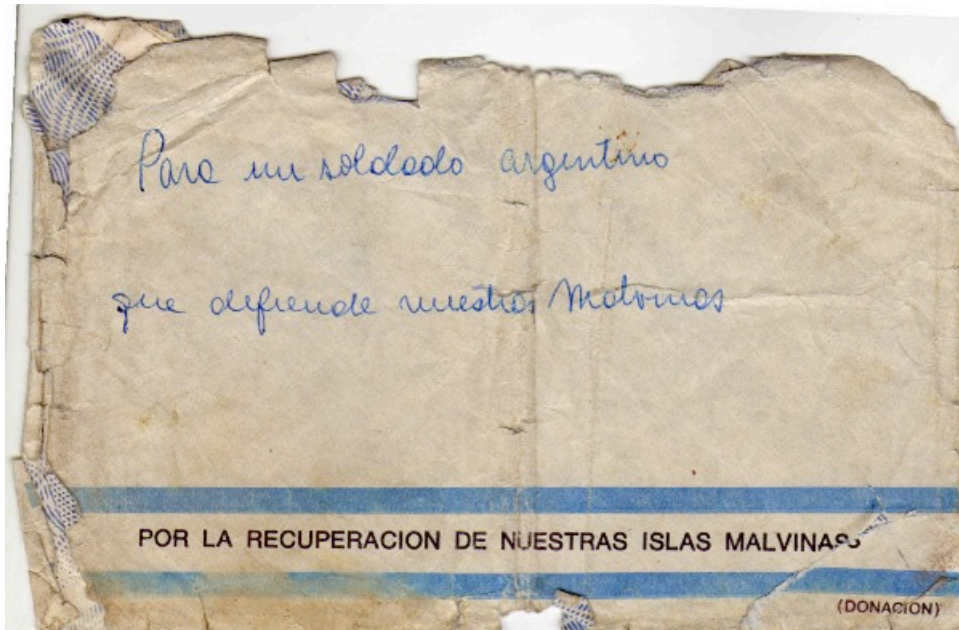 Para un soldado argentino
que defiende nuestras Malvinas
POR LA RECUPERACION DE NUESTRAS ISLAS MALVINAS
(DONACION)